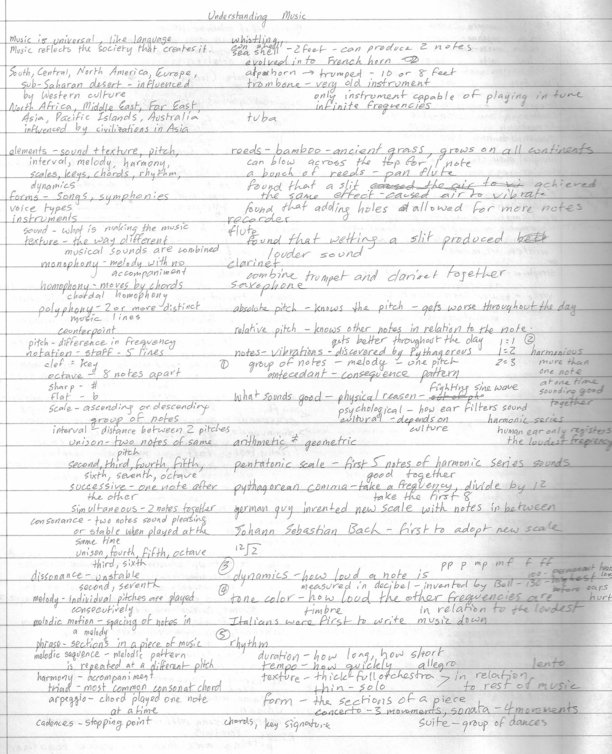 Understanding Music
Music is universal, like language
Music reflects the society that creates it.
South, Central, North America, Europe,
sub-Saharan desert - influenced
by Western culture
North Africa, Middle East, Far East,
Asia, Pacific Islands, Australia
influenced by civilizations in Asia
elements - sound + texture, pitch,
interval, melody, harmony,
scales, keys, chords, rhythm,
dynamics
forms - songs, symphonies
voice types
instruments
sound - what is making the music
texture - the way different
musical sounds are combined
monophony - melody with no
accompaniment
homophony - moves by chords
chordal homophony
polyphony - 2 or more distinct
music lines
counterpoint
pitch - difference in frequency
notation - staff - 5 lines
clef = key
octave - 8 notes apart
sharp - #
flat - b
scale - ascending or descending
group of notes
interval - distance between 2 pitches
unison - two notes of same
pitch
second, third, fourth, fifth,
sixth, seventh, octave
successive - one note after
the other
simultaneous - 2 notes together
consonance - two notes sound pleasing
or stable when played at the
same time
unison, fourth, fifth, octave
third, sixth
dissonance - unstable
second, seventh
melody - individual pitches are played
consecutively
melodic motion - spacing of notes in
a melody
phrase - sections in a piece of music
melodic sequence - melodic pattern
is repeated at a different pitch
harmony - accompaniment
triad - most common consonat chord
arpeggio - chord played one note
at a time
cadences - stopping point
whistling
sea shell - 2 feet - can produce 2 notes
evolved into French horn
alpehorn → trumped - 10 or 8 feet
trombone - very old instrument
only instrument capable of playing in tune
infinite frequencies
tuba
reeds - bamboo - ancient grass, grows on all continents
can blow across the top for 1 note
a bonch of reeds - pan flute
found that a slit achieved
the same effect - caused air to vibrate
found that adding holes allowed for more notes
recorder
flute
found that wetting a slit produced
louder sound
clarinet
combine trumpet and clarinet together
saxophone
absolute pitch - knows the pitch - gets worse throughout the day
relative pitch - knows other notes in relation to the note.
gets better throughout the day
notes - vibrations - discovered by Pythagorous
① group of notes - melody - one pitch
antecedant - consequence pattern
1=1 ②
1=2 harmonious
2=3 more than
one note
at one time
sounding good
together
What sounds good - physical reason - fighting sine wave
psychological - how ear filters sound
cultural - depends on
culture
harmonic series
human ear only registers
the loudest freqency
arithmetic ≠ geometric
pentatonic scale - first 5 notes of harmonic series sounds
good together
pythagorean comma - take a freqvency, divide by 12
take the first 8
german guy invented new scale with notes in between
Johann Sebastian Bach - first to adopt new scale
12√2
pp p mp mf f ff
③ dynamics - how loud a note is
measured in decibel - invented by Bell - 130 - before ears hurt
④ tone color - how loud the other frequencies are
timbre in relation to the loudest
Italians were first to write music down
⑤ rhythm
duration - how long, how short
tempo - how quickly allegro lento
texture - thick + full ofchestra > in relation
thin - solo to rest of music
form - the sections of a piece
concerto - 3 movements, sonata - 4 movements
chords, key signature suite - group of dances